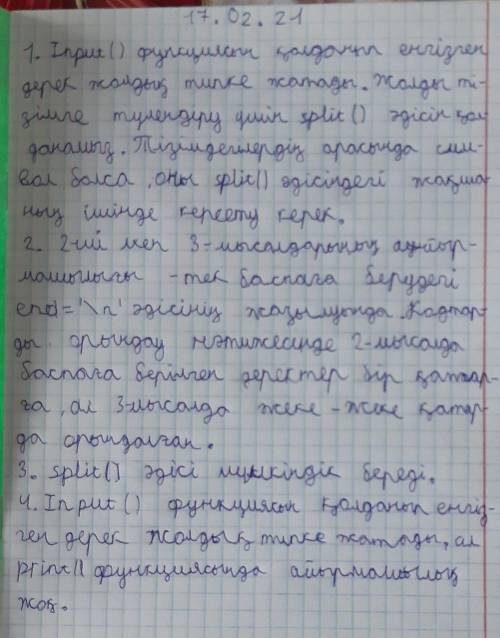 17.02.21
1. Input() функциясын қолданып енгізген
дерек жолдық типке жатады. Жолды ті-
зімге түлендіру үшін split() әдісін қол
данамыз. Тізімдегілердің арасында сим-
вол болса, оны split() әдісіндегі жақша-
ның ішінде көрсету керек.
2. 2-ші мен 3-мысалдарының айыр-
машылығы - тек баспаға берудегі
end='\n' әдісінің жазылуында. Кодтар-
ды орындау нәтижесінде 2-мысалда
баспаға берілген деректер бір қатар-
ға, ал 3-мысалда жеке-жеке қатар-
да орындалған.
3. split() әдісі мүмкіндік береді.
4. Input() функциясын қолданып енгіз-
ген дерек жолдық типке жатады, ал
print() функциясында айырмашылық
жоқ.